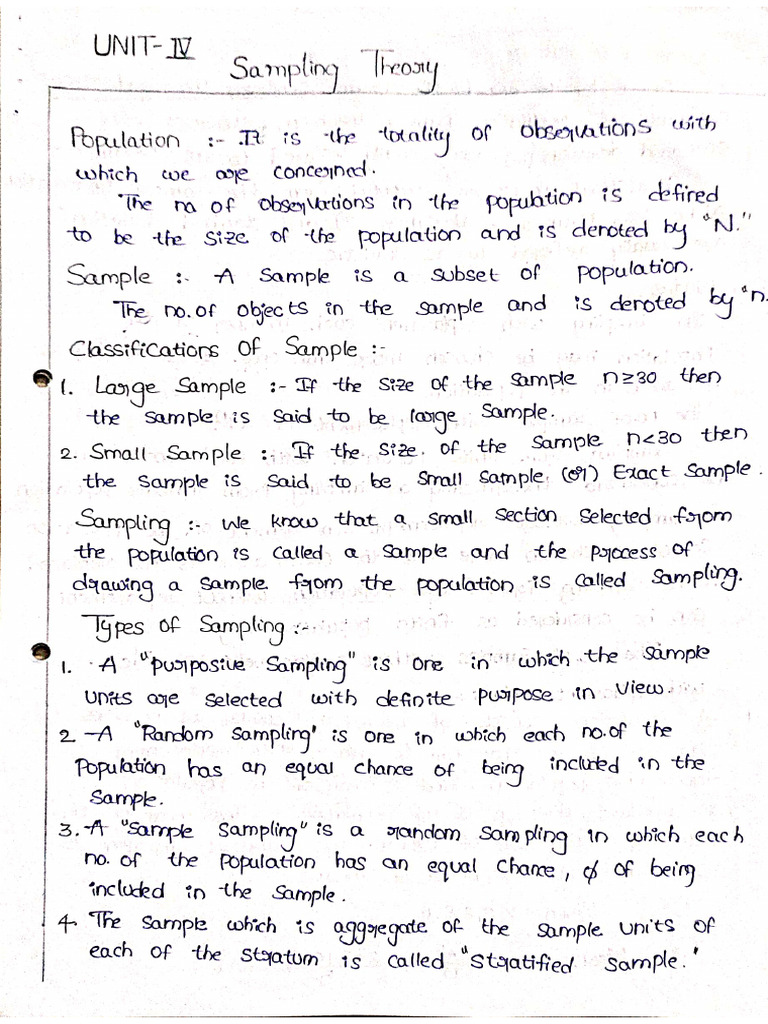 UNIT-IV
Sampling Theory
Population :- It is the totality of observations with
which we are concerned.
The no of observations in the population is defined
to be the size of the population and is denoted by "N."
Sample :- A sample is a subset of population.
The no. of objects in the sample and is denoted by "n.
Classifications Of Sample :-
1. Large Sample :- If the size of the sample n≥30 then
the sample is said to be large sample.
2. Small Sample :- If the size. of the sample n<30 then
the sample is said to be small sample. (or) Exact sample.
Sampling :- we know that a small section selected from
the population is called a sample and the process of
drawing a sample from the population is called sampling.
Types of Sampling :-
1. A "purposive sampling" is one in which the sample
units are selected with definite purpose in view.
2. A "Random sampling' is one in which each no. of the
population has an equal chance of being included in the
sample.
3. A "sample sampling" is a random sampling in which each
no. of the population has an equal chance, of being
included in the sample.
4. The sample which is aggregate of the sample units of
each of the stratum is called "stratified sample."